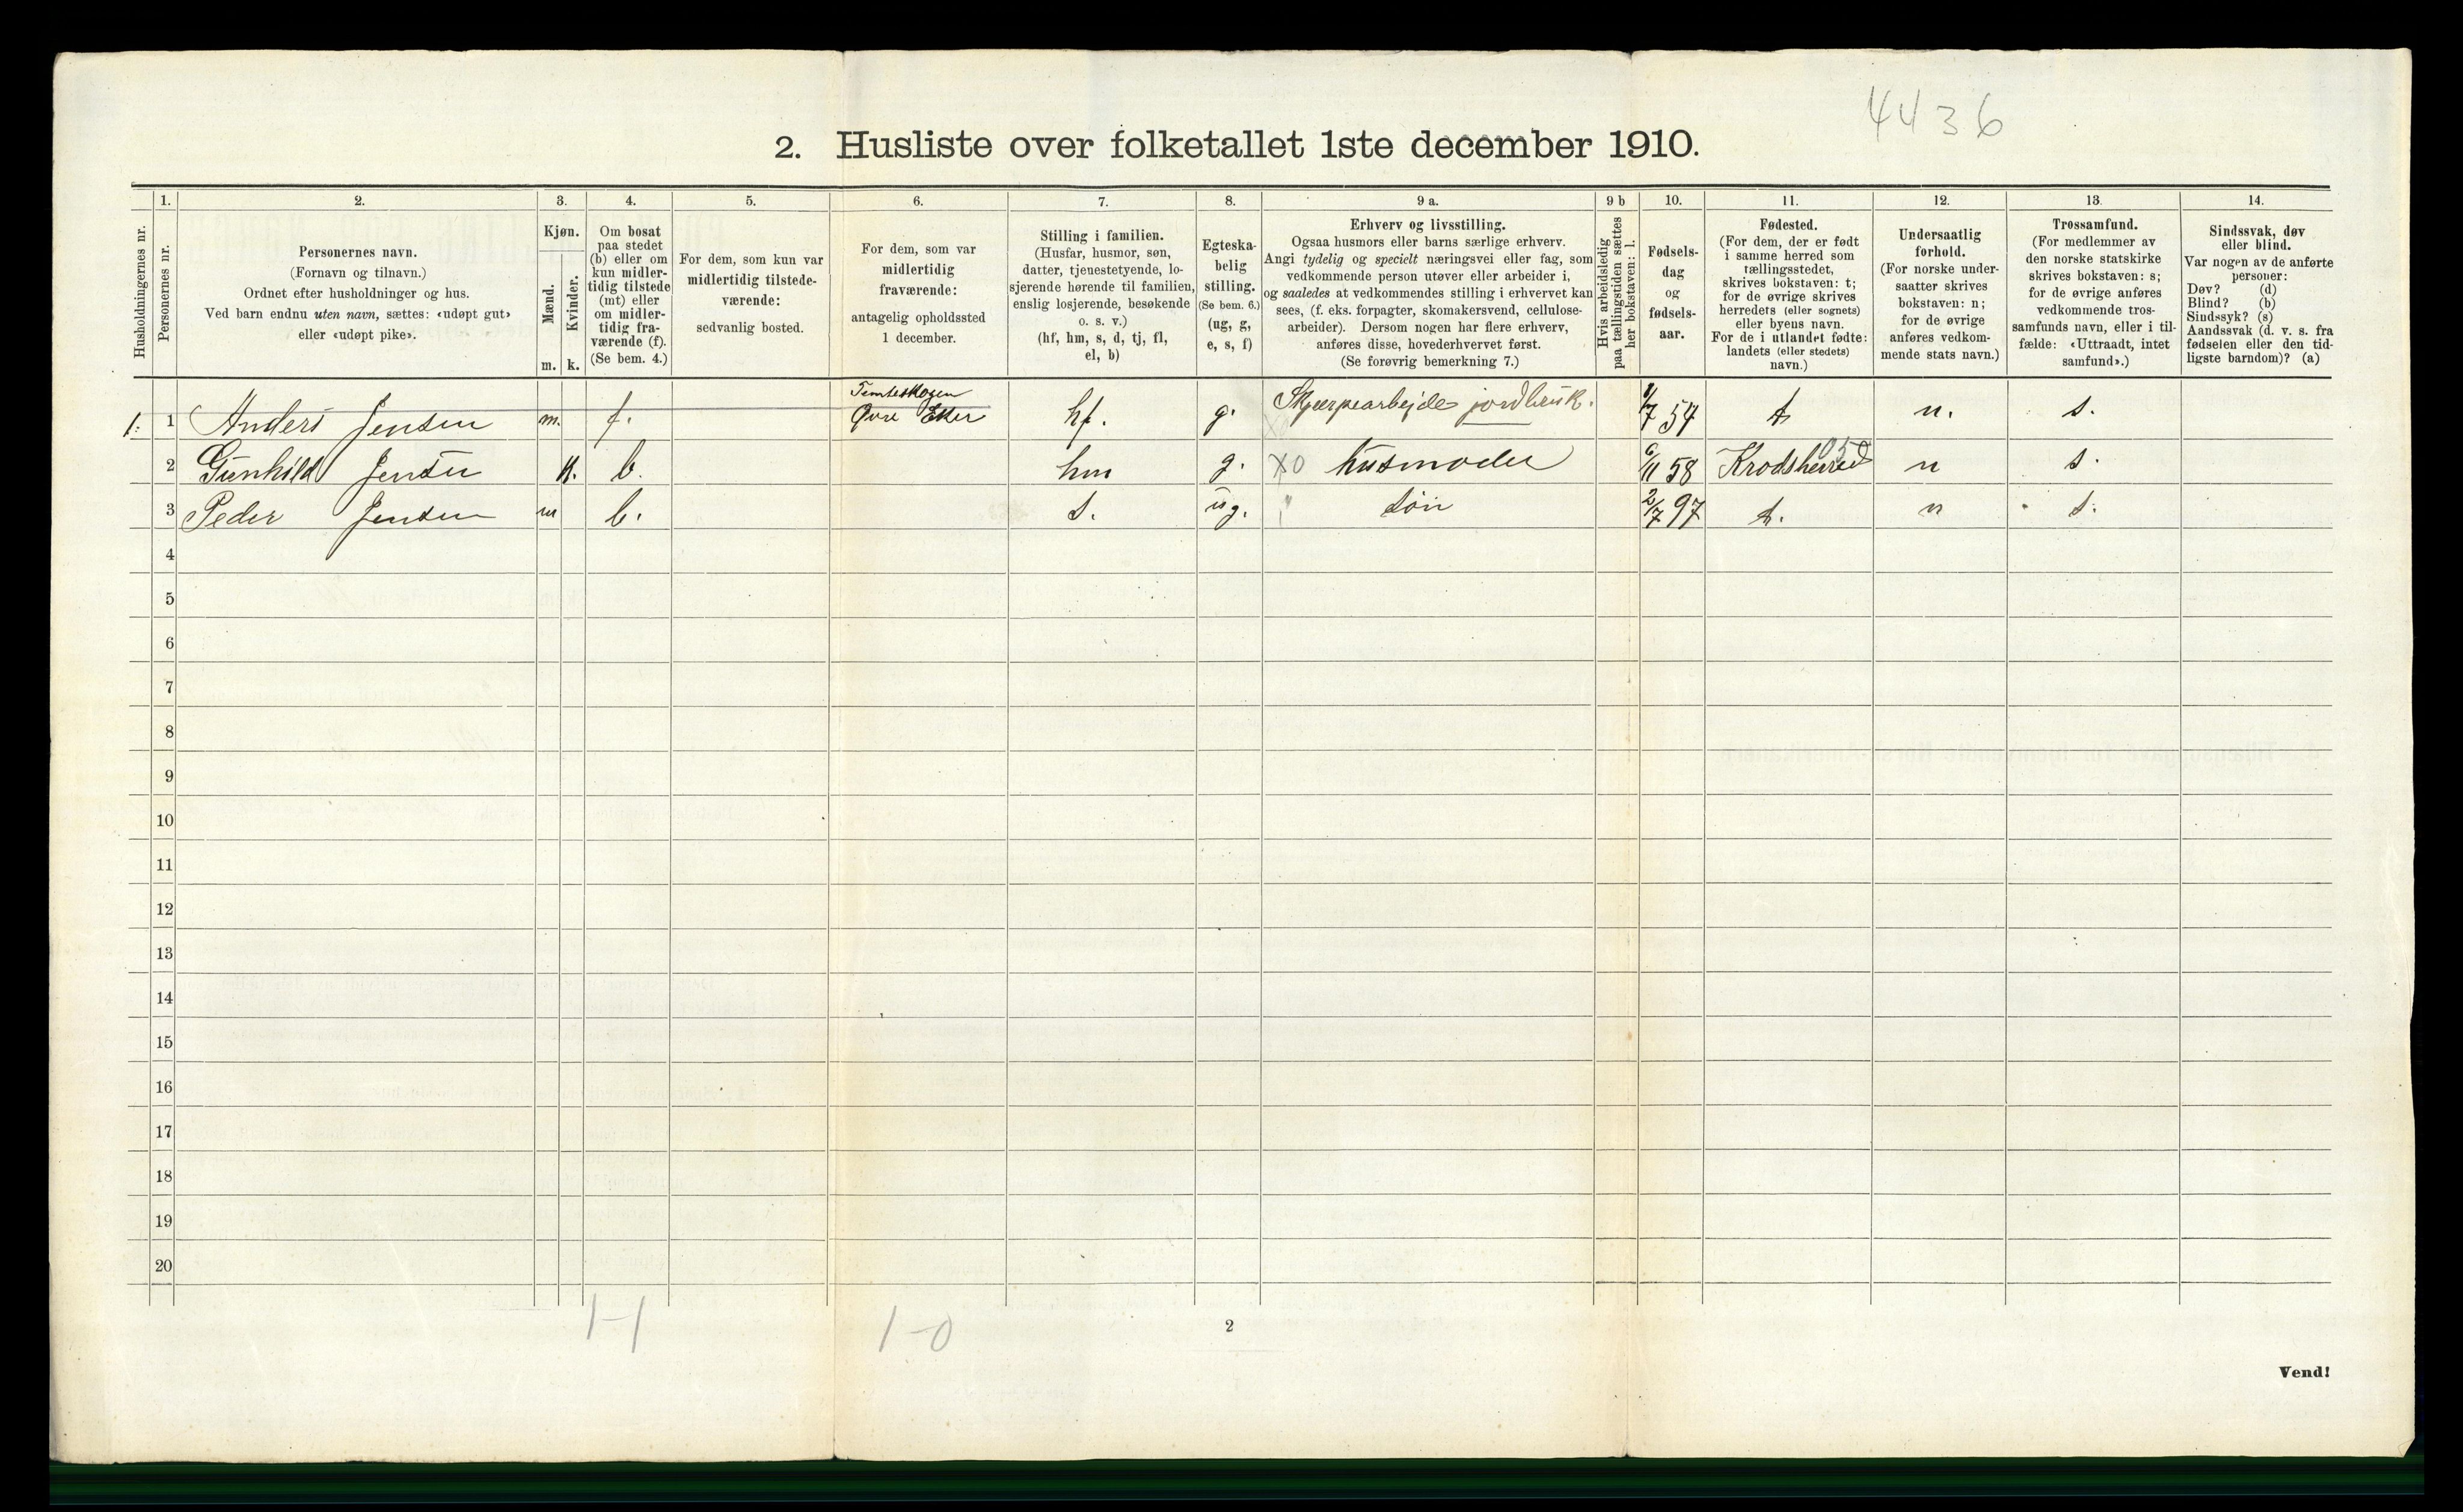 4436
2. Husliste over folketallet 1ste december 1910.
Husholdningernes nr.
1.
Personernes nr.
2.
Personernes navn.
(Fornavn og tilnavn.)
Ordnet efter husholdninger og hus.
Ved barn endnu uten navn, sættes: «udøpt gut»
eller «udøpt pike».
3.
Kjøn.
Mænd.
m.
Kvinder.
k.
4.
Om bosat
paa stedet
(b) eller om
kun midler-
tidig tilstede
(mt) eller
om midler-
tidig fra-
værende (f).
(Se bem. 4.)
5.
For dem, som kun var
midlertidig tilstede-
værende:
sedvanlig bosted.
6.
For dem, som var
midlertidig
fraværende:
antagelig opholdssted
1 december.
7.
Stilling i familien.
(Husfar, husmor, søn,
datter, tjenestetyende, lo-
sjerende hørende til familien,
enslig losjerende, besøkende
o. s. v.)
(hf, hm, s, d, tj, fl,
el, b)
8.
Egteska-
belig
stilling.
(Se bem. 6.)
(ug, g,
e, s, f)
9 a.
Erhverv og livsstilling.
Ogsaa husmors eller barns særlige erhverv.
Angi tydelig og specielt næringsvei eller fag, som
vedkommende person utøver eller arbeider i,
og saaledes at vedkommendes stilling i erhvervet kan
sees, (f. eks. forpagter, skomakersvend, cellulose-
arbeider). Dersom nogen har flere erhverv,
anføres disse, hovederhvervet først.
(Se forøvrig bemerkning 7.)
9 b
Hvis arbeidsledig
paa tællingstiden sættes
her bokstaven: l.
10.
Fødsels-
dag
og
fødsels-
aar.
11.
Fødested.
(For dem, der er født
i samme herred som
tællingsstedet,
skrives bokstaven: t;
for de øvrige skrives
herredets (eller sognets)
eller byens navn.
For de i utlandet fødte:
landets (eller stedets)
navn.)
12.
Undersaatlig
forhold.
(For norske under-
saatter skrives
bokstaven: n;
for de øvrige
anføres vedkom-
mende stats navn.)
13.
Trossamfund.
(For medlemmer av
den norske statskirke
skrives bokstaven: s;
for de øvrige anføres
vedkommende tros-
samfunds navn, eller i til-
fælde: «Uttraadt, intet
samfund».)
14.
Sindssvak, døv
eller blind.
Var nogen av de anførte
personer:
Døv? (d)
Blind? (b)
Sindssyk? (s)
Aandssvak (d. v. s. fra
fødselen eller den tid-
ligste barndom)? (a)
1. 1 Anders Jensen m. f. Øvre Eker hf. g. jordbruk. 1/7 54 t n. s.
2 Gunhild Jensen k. b. hm g. XO husmoder 6/11 58 Krodsherred n s.
3 Peder Jensen m b. s. ug. " søn 2/7 97 t. n s.
4
5
6
7
8
9
10
11
12
13
14
15
16
17
18
19
20
1-1
1-0
2
Vend!